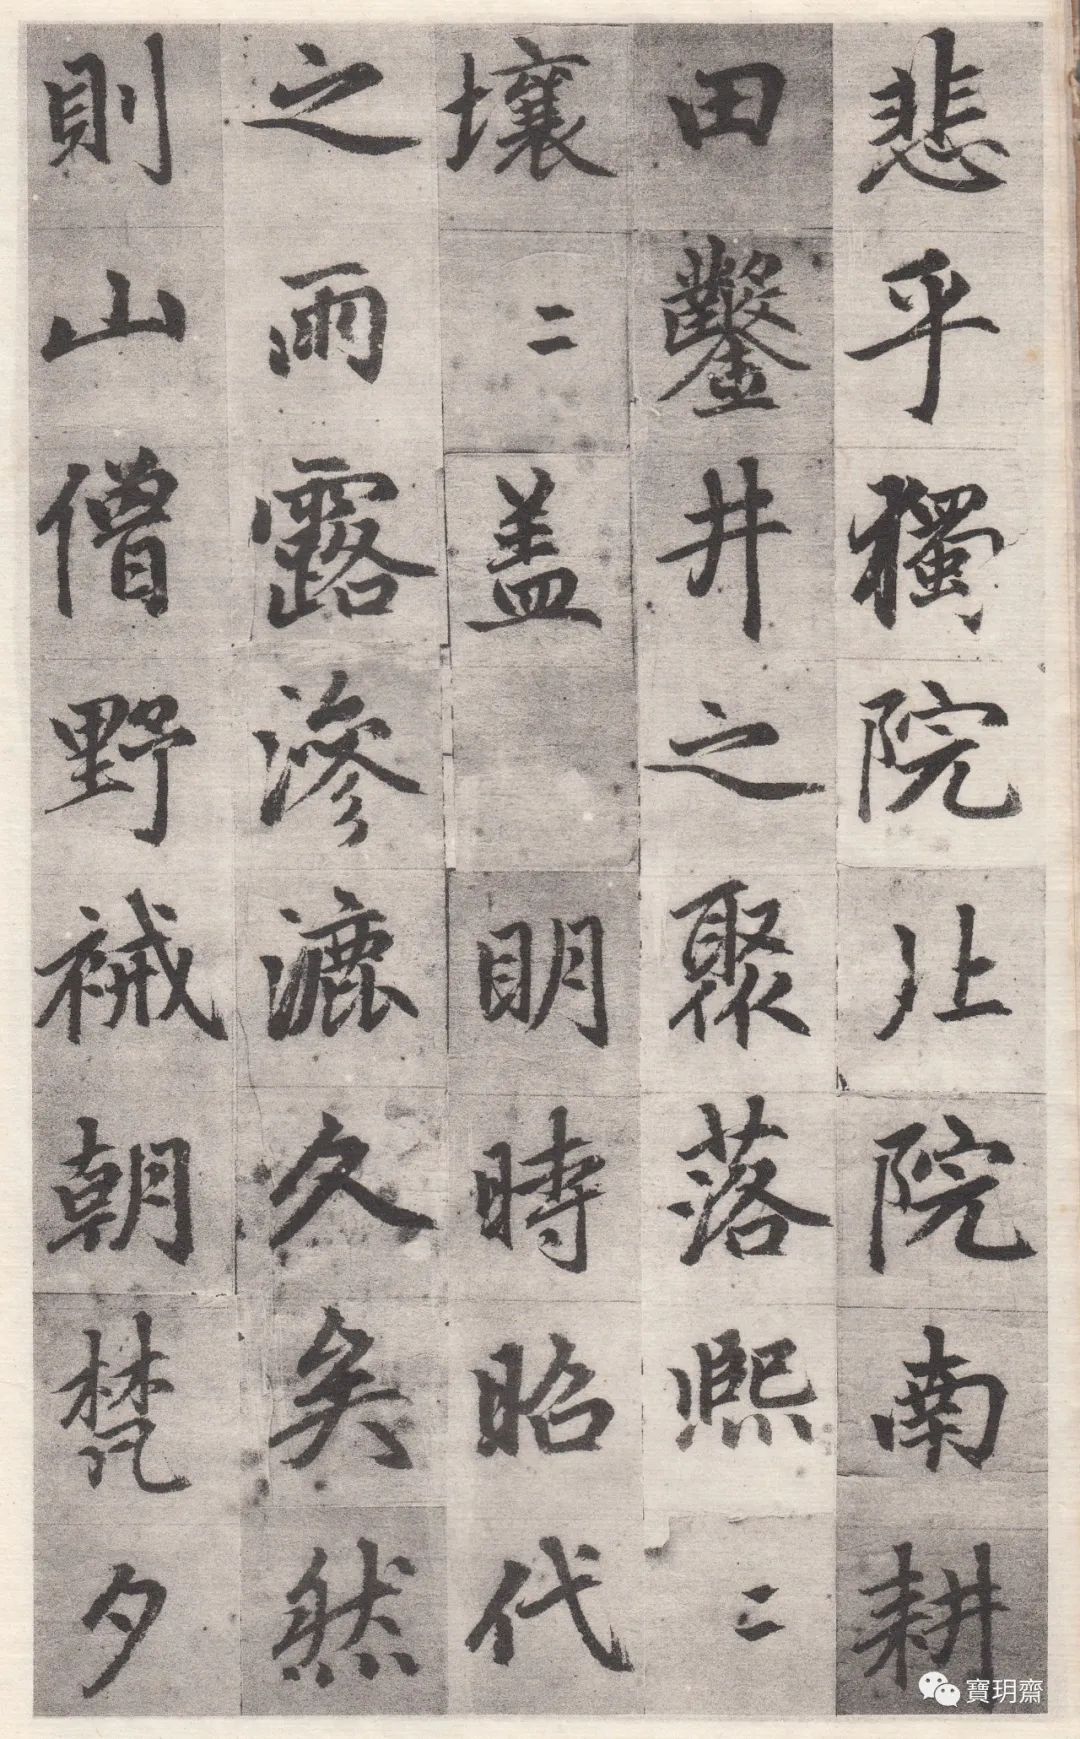 悲乎獨院北院南耕
田鑿井之聚落熙二
壤二盖明時昭代
之雨露滲漉久矣然
則山僧野衲朝梵夕
寶玥齋